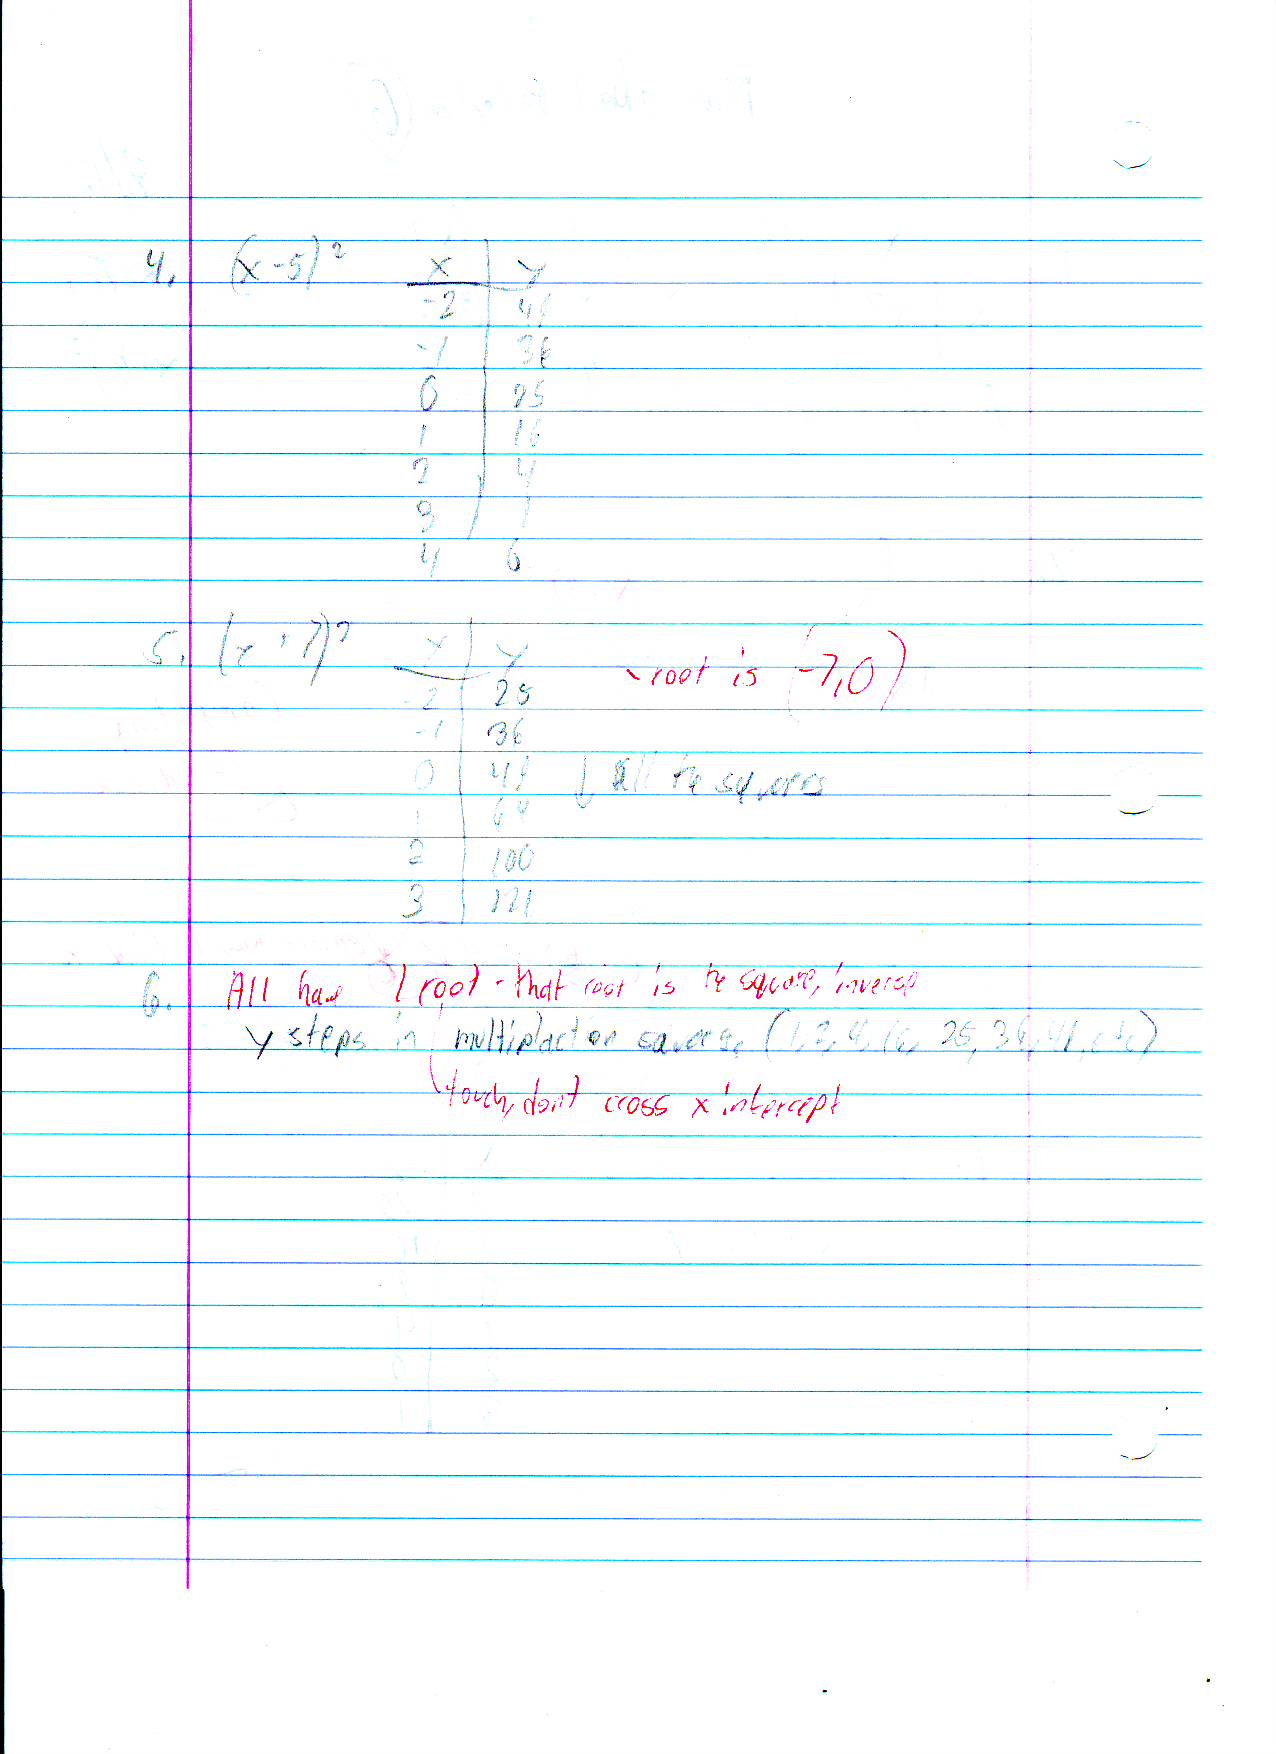 4. (x-5)² x y
-2 49
-1 36
0 25
1 16
2 4
3 1
4 0
5. (x+7)² x y root is (-7,0)
-2 25
-1 36
0 49 ↓ all the squares
1 64
2 100
3 121
6. All have 1 root - that root is the square, inverse
y steps in multiplaction squares (1, 2, 4, 16, 25, 36, 49, etc)
touch, dont cross x intercept